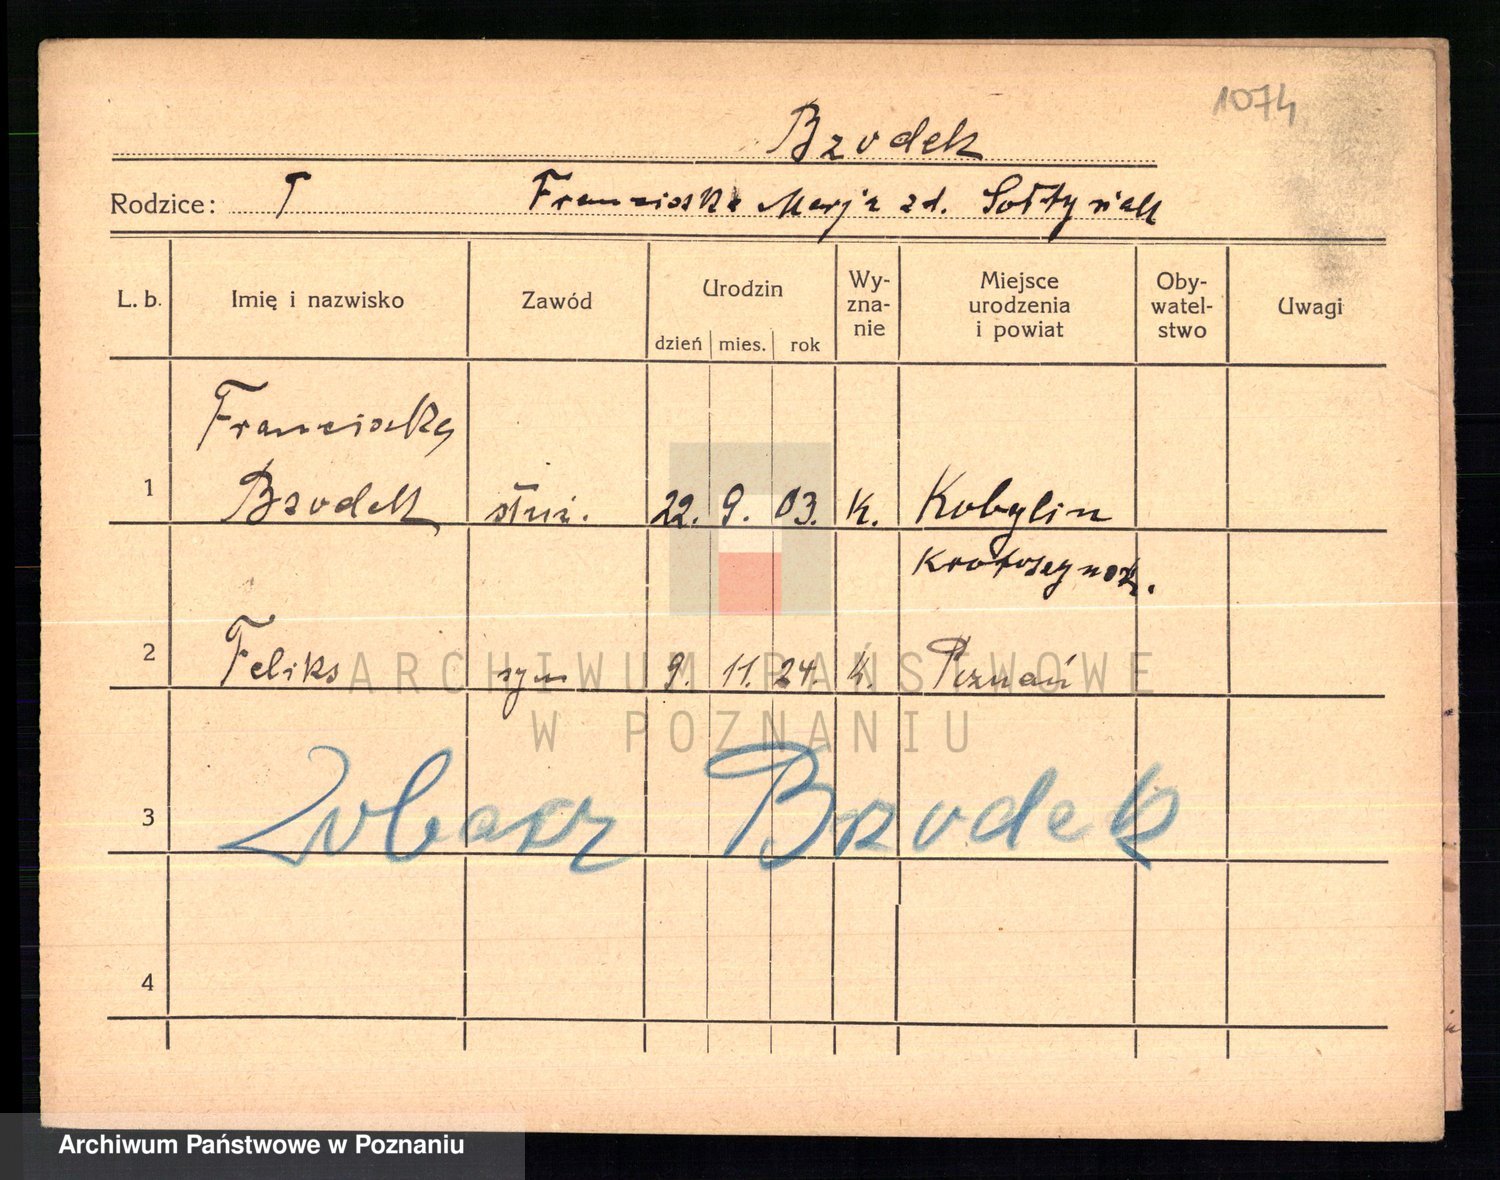 1074
Brodek
Rodzice: T Franciszka Marja zd. Sołtysiak
L. b. Imię i nazwisko Zawód Urodzin Wy-zna-nie Miejsce urodzenia i powiat Oby-watel-stwo Uwagi
dzień mies. rok
Franciszka
1 Bzodek służ. 22. 9. 03. K. Kobylin
Krotoszynsk.
2 Feliks syn 9. 11. 24. k. Poznań
3 Zobacz Bzodek
4
ARCHIWUM PAŃSTWOWE
W POZNANIU
Archiwum Państwowe w Poznaniu